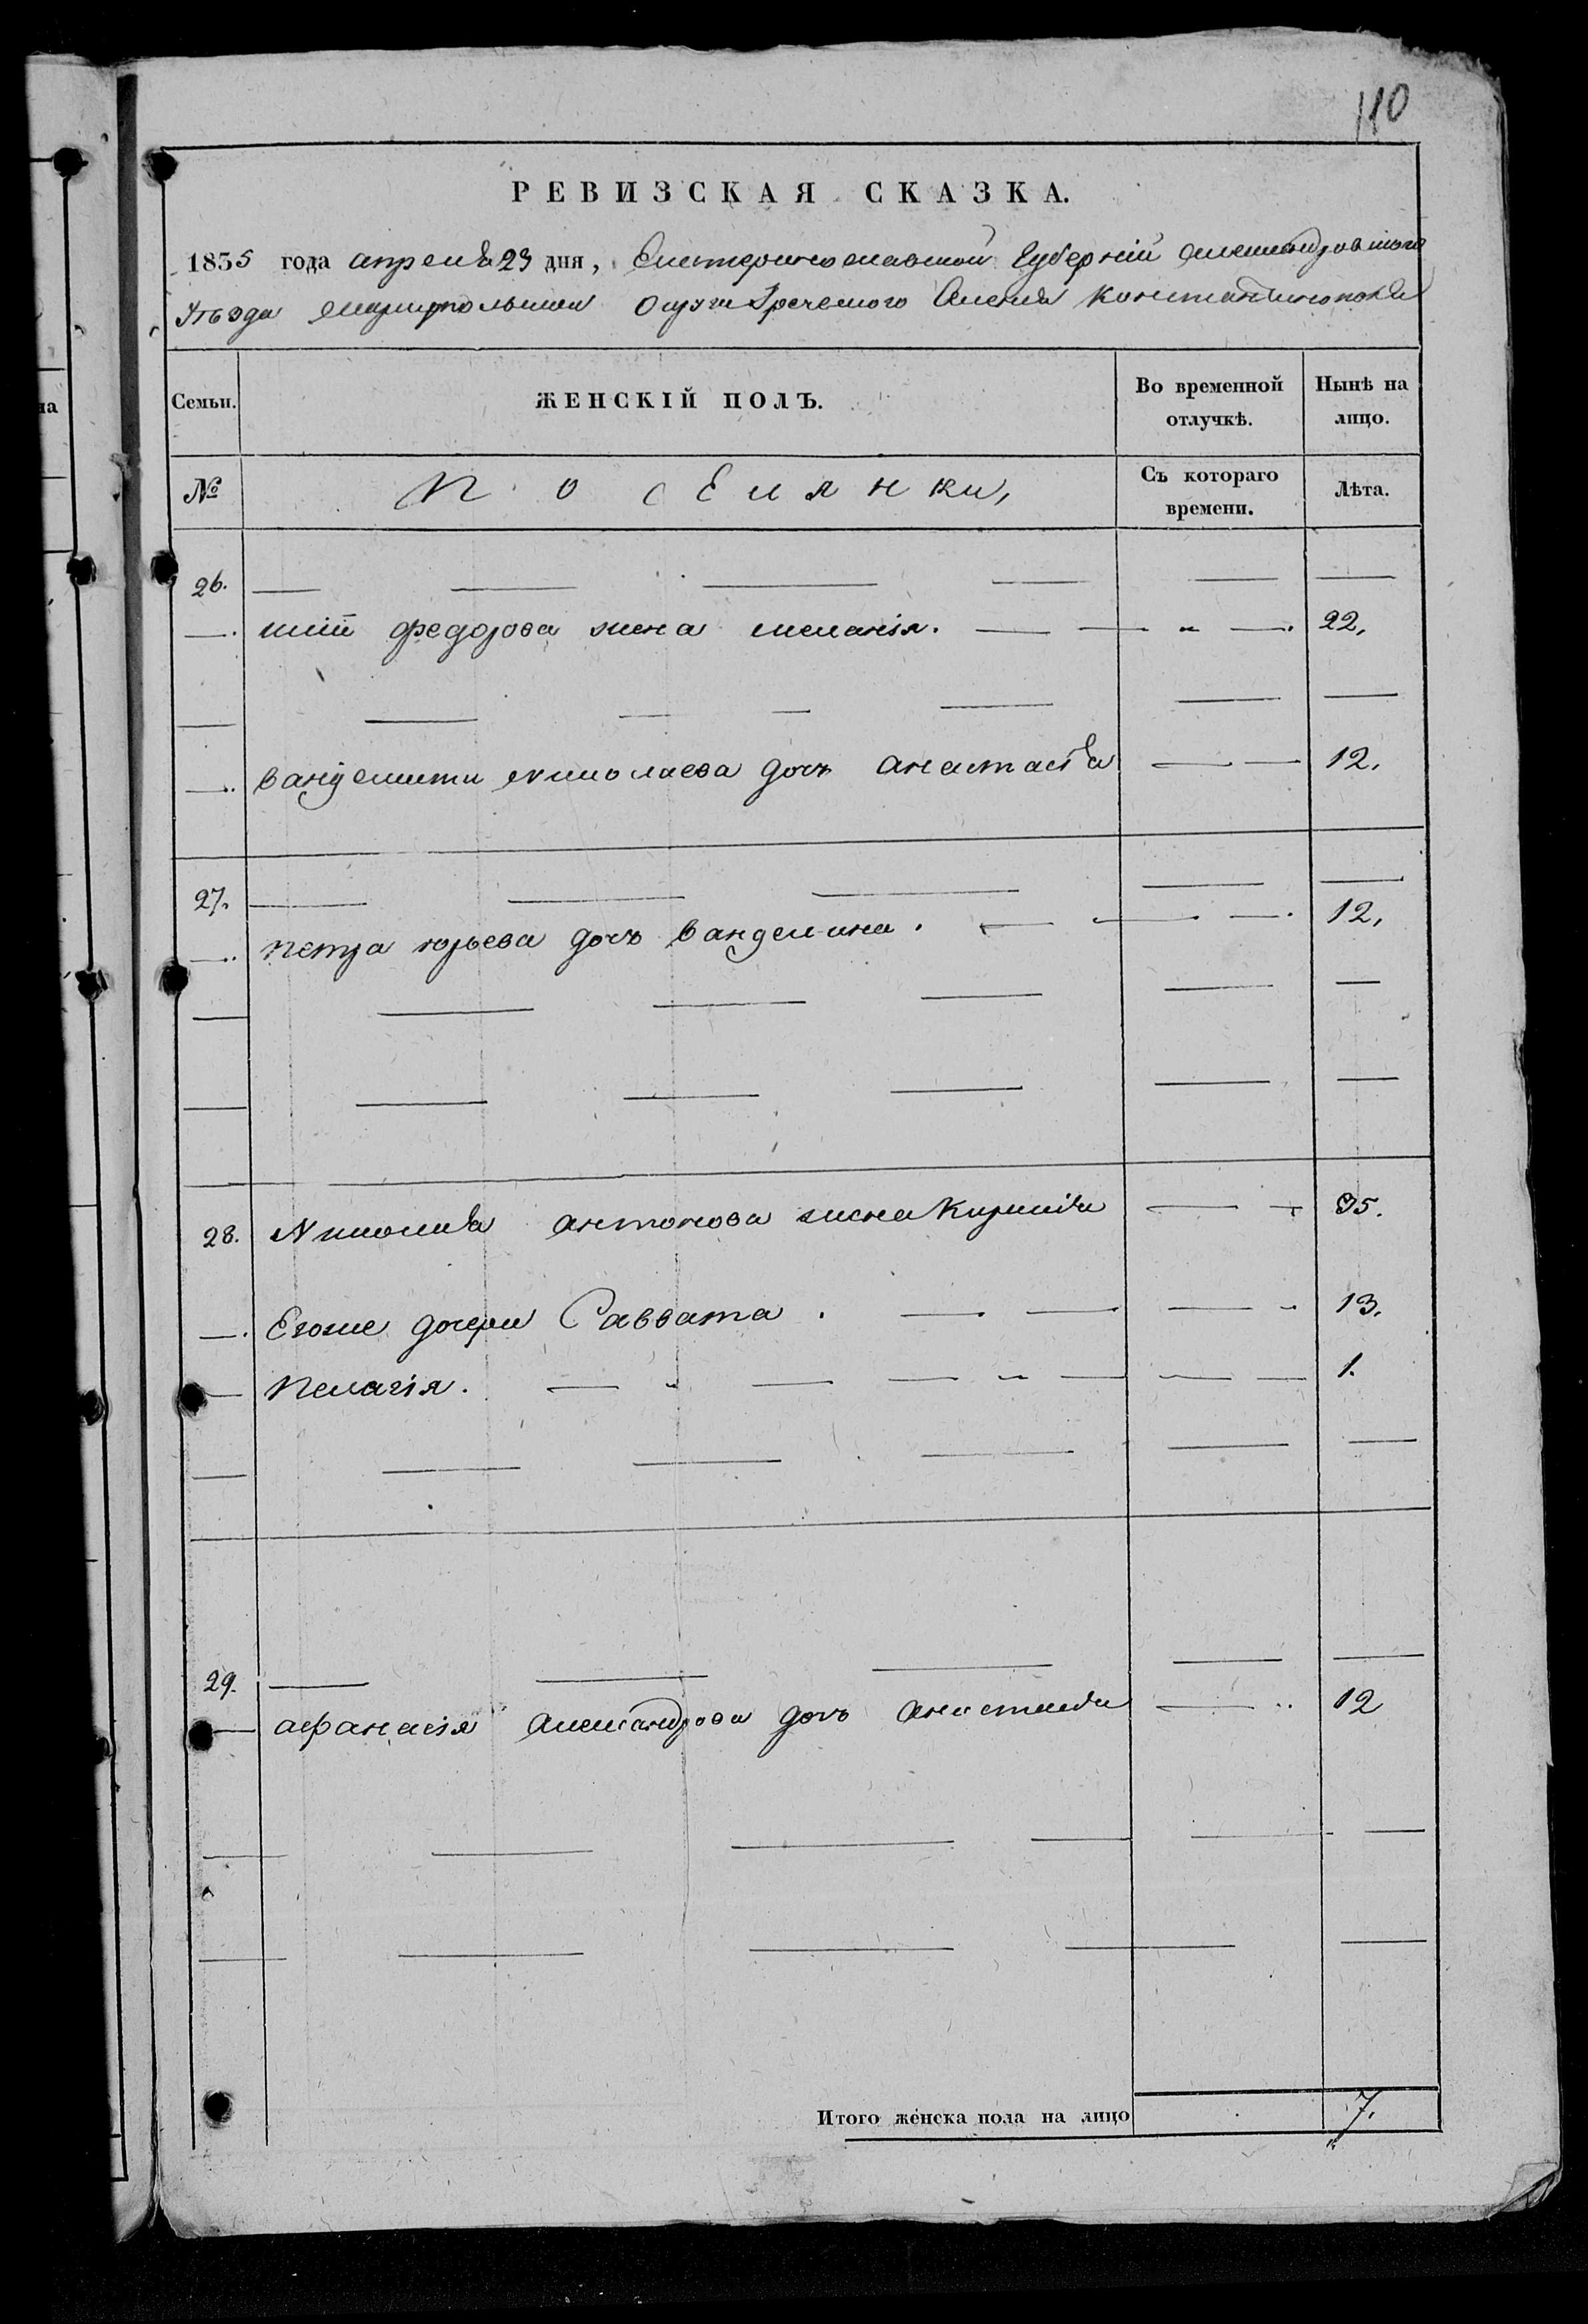 110
РЕВИЗСКАЯ СКАЗКА.
1835 года апреля 23 дня, Екатеринославской Губернии Александровского
Уѣзда Мариупольской Округи Греческого Селения Константинополя
на
Семьи.
ЖЕНСКІЙ ПОЛЪ.
Во временной отлучкѣ.
Нынѣ на лицо.
№
Поселянки,
Съ котораго времени.
Лѣта.
26.
Федорова жена Меланія. 22.
Николаева дочь Анастасія 12.
27.
Петра Юрьева дочь Ванделина. 12.
28. Николая Антонова жена Киріакія 35.
Его же дочери Саввата. 13.
Пелагія. 1.
29.
Афанасія Александрова дочь Анастасія 12
Итого женска пола на лицо 7.